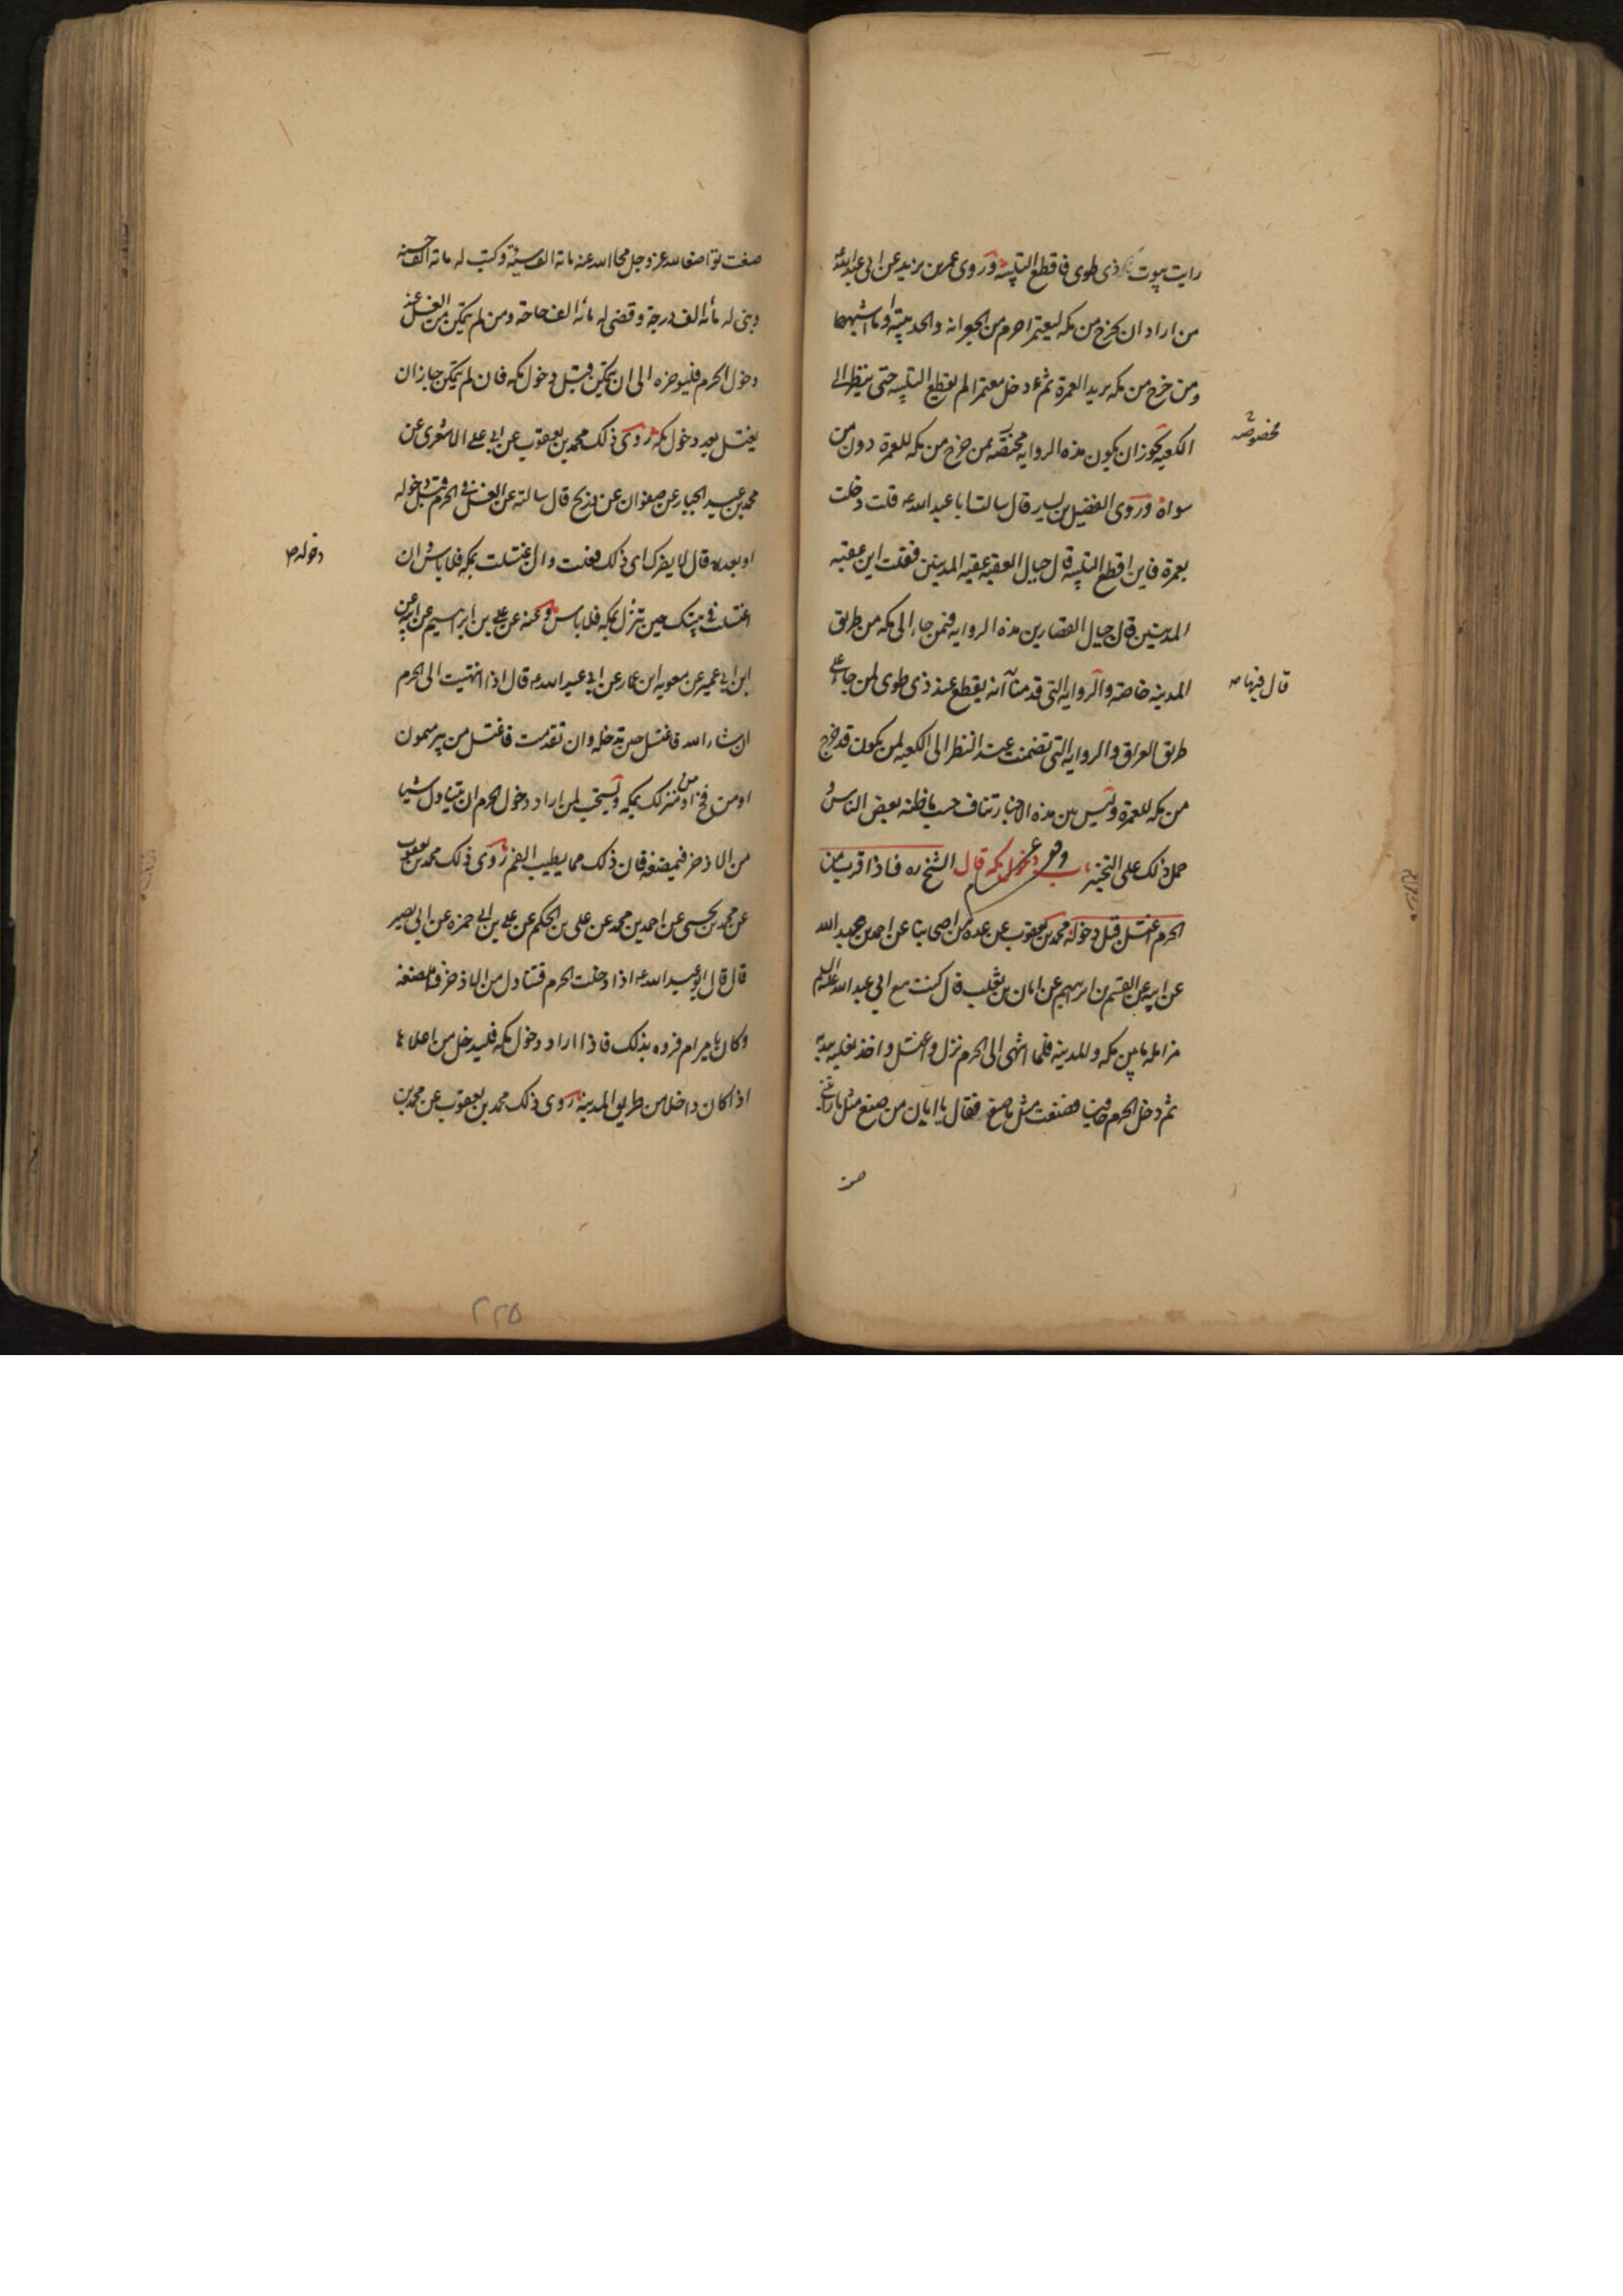 رايت بيوت ذى طوى فاقطع التلبيه وروى عمر بن يزيد عن ابى عبد الله ع
من اراد ان يخرج من مكه ليعتمر احرم من الجعرانه والحديبيه او ما اشبههما
ومن خرج من مكه يريد العمرة ثم دخل معتمرا لم يقطع التلبيه حتى ينظر الى
الكعبه يجوز ان يكون هذه الروايه مختصه بمن خرج من مكه للعمرة دون من
مخصوصه
سواه وروى الفضيل بن يسار قال سالت ابا عبد الله ع قلت دخلت
بعمرة فاين اقطع التلبيه قال حيال العقبه عقبه المدنيين فقلت اين عقبه
المدنيين قال حيال القصارين هذه الروايه فمن جاء الى مكه من طريق
المدينه خاصه والروايه التى قدمناها انه يقطع عند ذى طوى لمن جاء على
قال فيها
طريق العراق والروايه التى تضمنت عند النظر الى الكعبه لمن يكون قد خرج
من مكه للعمرة وليس بين هذه الاخبار تناف حسب ما ظنه بعض الناس و
حمل ذلك على التخيير باب دخول مكه قال الشيخ ره فاذا قرب من
الحرم اغتسل قبل دخوله محمد بن يعقوب عن عدة من اصحابنا عن احمد بن عبد الله
عن ابيه عن القسم بن ابرهيم عن ابان بن تغلب قال كنت مع ابى عبد الله عليه السلم
مزامله ما بين مكه والمدينه فلما انتهى الى الحرم نزل واغتسل واخذ نعليه بيديه
ثم دخل الحرم حافيا فصنعت مثل ما صنع فقال يا ابان من صنع مثل ما رايتنى
صنعت
صنعت تواضعا لله عز وجل محا الله عنه مائة الف سيئة وكتب له مائة الف حسنه
وبنى له مائة الف درجة وقضى له مائة الف حاجة ومن لم يتمكن من الغسل عند
دخول الحرم فليوخره الى ان يتمكن قبل دخول مكه فان لم يتمكن جاز ان
يغتسل بعد دخول مكه روى ذلك محمد بن يعقوب عن ابى على الاشعرى عن
محمد بن عبد الجبار عن صفوان عن ذريح قال سالته عن الغسل فى الحرم قبل دخوله
او بعد قال لا يضرك اى ذلك فعلت وان اغتسلت بمكه فلا باس وان
دخوله
اغتسلت فى بيتك حين تنزل بمكه فلا باس وعنه عن على بن ابراهيم عن ابيه عن
ابن ابى عمير عن معويه ابن عمار عن ابى عبد الله ع قال اذا انتهيت الى الحرم
ان شاء الله فاغتسل حين تدخله وان تقدمت فاغتسل من بير ميمون
او من فخ او من منزلك بمكه ويستحب لمن اراد دخول الحرم ان يتناول شيا
من الاذخر فيمضغه فان ذلك مما يطيب الفم روى ذلك محمد بن يعقوب
عن محمد بن يحيى عن احمد بن محمد عن على بن الحكم عن على بن ابى حمزه عن ابى بصير
قال قال ابو عبد الله ع اذا دخلت الحرم فتناول من الاذخر فامضغه
وكان يامر ام فروه بذلك فاذا اراد دخول مكه فليدخل من اعلاها
اذا كان داخلا من طريق المدينه روى ذلك محمد بن يعقوب عن محمد بن
٢٢٥